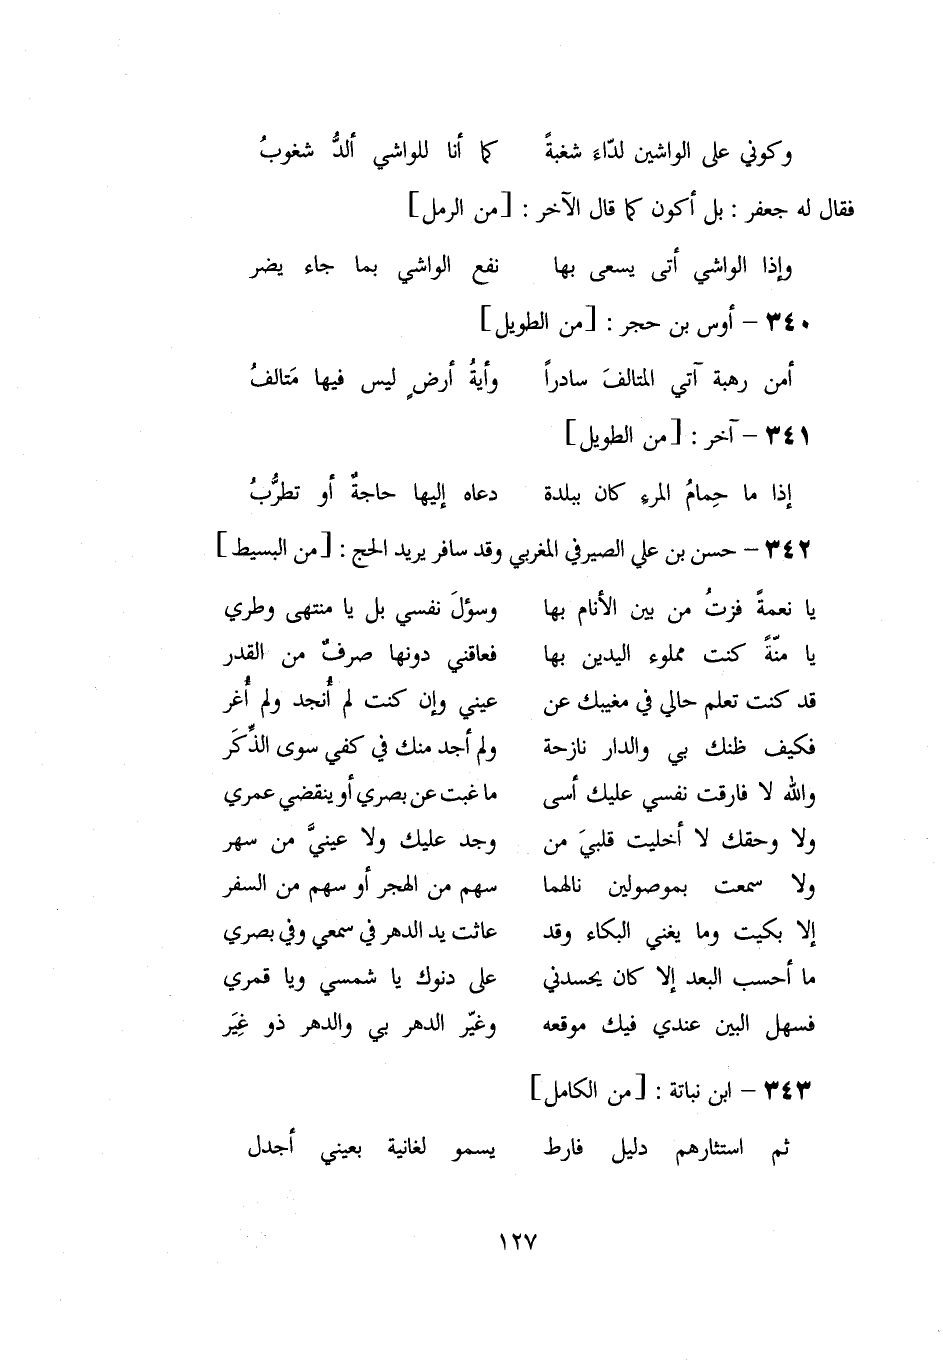 وكوني على الواشين لدّاءَ شغبةً كما أنا للواشي ألدُّ شغوبُ
فقال له جعفر : بل أكون كما قال الآخر : [من الرمل]
وإذا الواشي أتى يسعى بها نفع الواشي بما جاء يضر
٣٤٠ – أوس بن حجر : [من الطويل]
أمن رهبة آتي المتالفَ سادراً وأيةُ أرضٍ ليس فيها مَتالفُ
٣٤١ – آخر : [من الطويل]
إذا ما حِمامُ المرءِ كان ببلدة دعاه إليها حاجةٌ أو تطرُّبُ
٣٤٢ – حسن بن علي الصيرفي المغربي وقد سافر يريد الحج : [من البسيط]
يا نعمةً فزتُ من بين الأنام بها وسؤلَ نفسي بل يا منتهى وطري
يا منّةً كنت مملوء اليدين بها فعاقني دونها صرفٌ من القدر
قد كنت تعلم حالي في مغيبك عن عيني وإن كنت لم أُنجد ولم أُغر
فكيف ظنك بي والدار نازحة ولم أجد منك في كفي سوى الذِّكَر
والله لا فارقت نفسي عليك أسى ما غبت عن بصري أو ينقضي عمري
ولا وحقك لا أخليت قلبيَ من وجد عليك ولا عينيَّ من سهر
ولا سمعت بموصولين نالهما سهم من الهجر أو سهم من السفر
إلا بكيت وما يغني البكاء وقد عاثت يد الدهر في سمعي وفي بصري
ما أحسب البعد إلا كان يحسدني على دنوك يا شمسي ويا قمري
فسهل البين عندي فيك موقعه وغيّر الدهر بي والدهر ذو غِيَر
٣٤٣ – ابن نباتة : [من الكامل]
ثم استثارهم دليل فارط يسمو لغانية بعيني أجدل
١٢٧